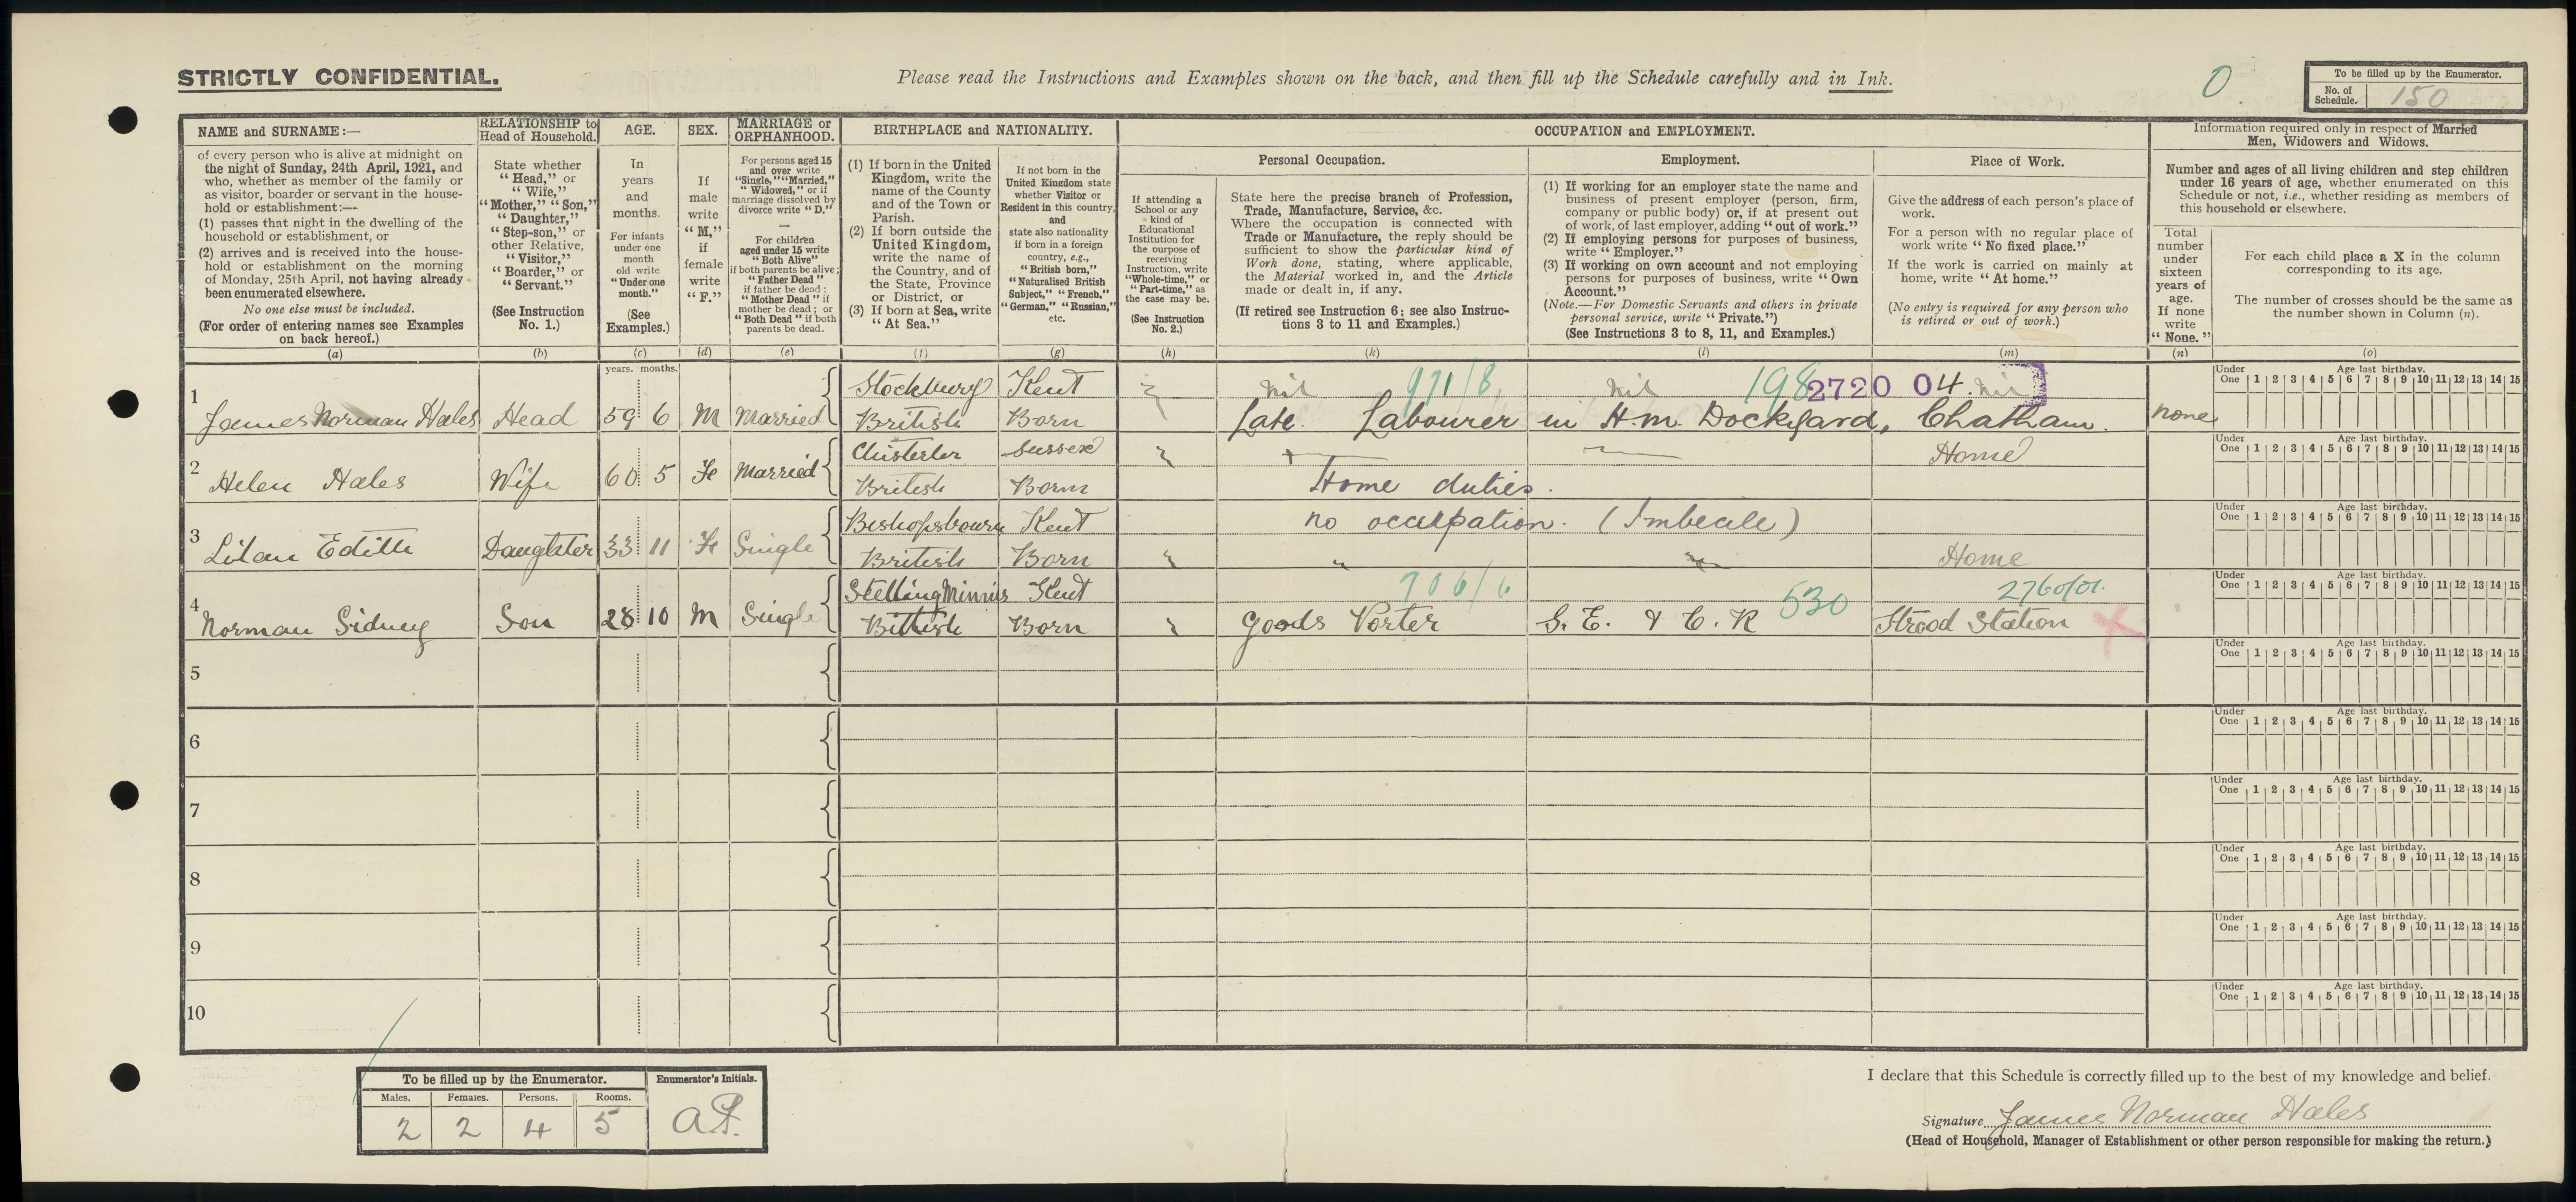 STRICTLY CONFIDENTIAL.
Please read the Instructions and Examples shown on the back, and then fill up the Schedule carefully and in Ink.
0
To be filled up by the Enumerator.
No. of Schedule. 150
NAME and SURNAME:—
of every person who is alive at midnight on
the night of Sunday, 24th April, 1921, and
who, whether as member of the family or
as visitor, boarder or servant in the house-
hold or establishment:—
(1) passes that night in the dwelling of the
household or establishment, or
(2) arrives and is received into the house-
hold or establishment on the morning
of Monday, 25th April, not having already
been enumerated elsewhere.
No one else must be included.
(For order of entering names see Examples
on back hereof.)
(a)
RELATIONSHIP to
Head of Household.
State whether
"Head," or
"Wife,"
"Mother," "Son,"
"Daughter,"
"Step-son," or
other Relative,
"Visitor,"
"Boarder," or
"Servant."
(See Instruction
No. 1.)
(b)
AGE.
In
years
and
months.
For infants
under one
month
old write
"Under one
month."
(See
Examples.)
(c)
SEX.
If
male
write
"M,"
if
female
write
"F."
(d)
MARRIAGE or
ORPHANHOOD.
For persons aged 15
and over write
"Single," "Married,"
"Widowed," or if
marriage dissolved by
divorce write "D."
—
For children
aged under 15 write
"Both Alive"
if both parents be alive;
"Father Dead"
if father be dead;
"Mother Dead" if
mother be dead; or
"Both Dead" if both
parents be dead.
(e)
BIRTHPLACE and NATIONALITY.
(1) If born in the United
Kingdom, write the
name of the County
and of the Town or
Parish.
(2) If born outside the
United Kingdom,
write the name of
the Country, and of
the State, Province
or District, or
(3) If born at Sea, write
"At Sea."
(f)
If not born in the
United Kingdom state
whether Visitor or
Resident in this country,
and
state also nationality
if born in a foreign
country, e.g.,
"British born,"
"Naturalised British
Subject," "French,"
"German," "Russian,"
etc.
(g)
OCCUPATION and EMPLOYMENT.
If attending a
School or any
kind of
Educational
Institution for
the purpose of
receiving
Instruction, write
"Whole-time," or
"Part-time," as
the case may be.
(See Instruction
No. 2.)
(h)
Personal Occupation.
State here the precise branch of Profession,
Trade, Manufacture, Service, &c.
Where the occupation is connected with
Trade or Manufacture, the reply should be
sufficient to show the particular kind of
Work done, stating, where applicable,
the Material worked in, and the Article
made or dealt in, if any.
(If retired see Instruction 6; see also Instruc-
tions 3 to 11 and Examples.)
(k)
Employment.
(1) If working for an employer state the name and
business of present employer (person, firm,
company or public body) or, if at present out
of work, of last employer, adding "out of work."
(2) If employing persons for purposes of business,
write "Employer."
(3) If working on own account and not employing
persons for purposes of business, write "Own
Account."
(Note.—For Domestic Servants and others in private
personal service, write "Private.")
(See Instructions 3 to 8, 11, and Examples.)
(l)
Place of Work.
Give the address of each person's place of
work.
For a person with no regular place of
work write "No fixed place."
If the work is carried on mainly at
home, write "At home."
(No entry is required for any person who
is retired or out of work.)
(m)
Information required only in respect of Married
Men, Widowers and Widows.
Number and ages of all living children and step children
under 16 years of age, whether enumerated on this
Schedule or not, i.e., whether residing as members of
this household or elsewhere.
Total
number
under
sixteen
years of
age.
If none
write
"None."
(n)
For each child place a X in the column
corresponding to its age.
The number of crosses should be the same as
the number shown in Column (n).
(o)
years. months.
Under One Age last birthday. 1 2 3 4 5 6 7 8 9 10 11 12 13 14 15
Stockbury Kent nil 971/8 nil 198 2720 04 nil
1 James Norman Hales Head 59 6 M Married British Born Late Labourer in H.M. Dockyard, Chatham. none
Under One Age last birthday. 1 2 3 4 5 6 7 8 9 10 11 12 13 14 15
Chisterler Sussex Home
2 Helen Hales Wife 60 5 Fe Married British Born Home duties.
Under One Age last birthday. 1 2 3 4 5 6 7 8 9 10 11 12 13 14 15
Bishopsbourn Kent no occupation. (Imbecile)
3 Lilan Edith Daughter 33 11 Fe Single British Born " Home
Under One Age last birthday. 1 2 3 4 5 6 7 8 9 10 11 12 13 14 15
Stelling Minnis Kent 706/6 530 2760/01.
4 Norman Sidney Son 28 10 M Single British Born Goods Porter S. E. & C. R Strood Station
5
Under One Age last birthday. 1 2 3 4 5 6 7 8 9 10 11 12 13 14 15
6
Under One Age last birthday. 1 2 3 4 5 6 7 8 9 10 11 12 13 14 15
7
Under One Age last birthday. 1 2 3 4 5 6 7 8 9 10 11 12 13 14 15
8
Under One Age last birthday. 1 2 3 4 5 6 7 8 9 10 11 12 13 14 15
9
Under One Age last birthday. 1 2 3 4 5 6 7 8 9 10 11 12 13 14 15
10
Under One Age last birthday. 1 2 3 4 5 6 7 8 9 10 11 12 13 14 15
To be filled up by the Enumerator.
Males. Females. Persons. Rooms.
2 2 4 5
Enumerator's Initials.
I declare that this Schedule is correctly filled up to the best of my knowledge and belief.
Signature James Norman Hales
(Head of Household, Manager of Establishment or other person responsible for making the return.)